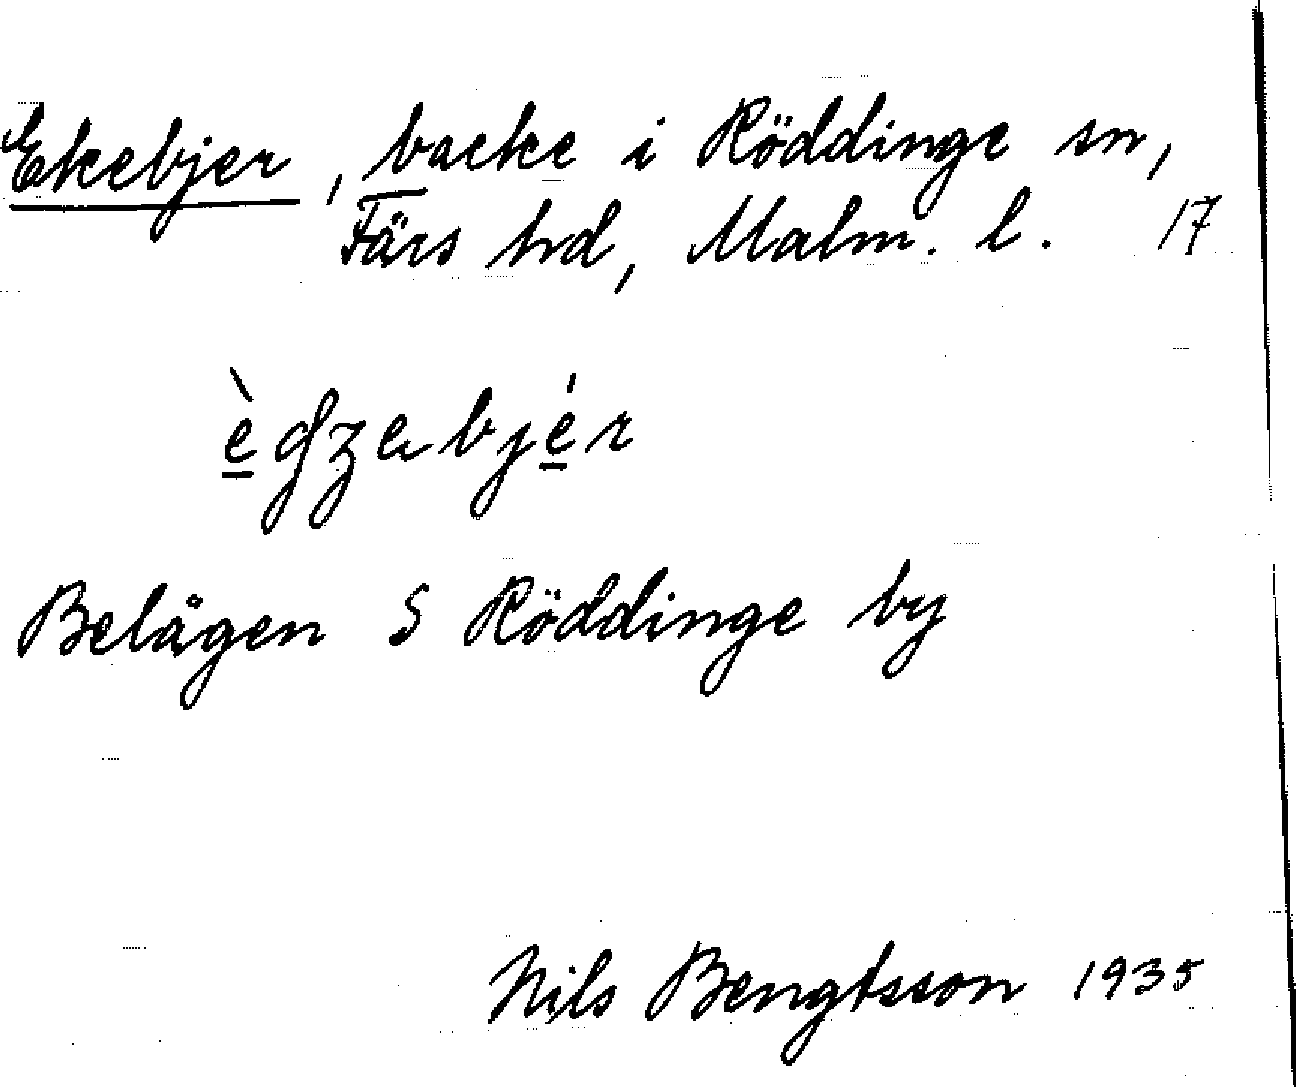 Ekebjer, backe i Röddinge sn,
Färs hrd, Malm. l. 17
Belägen S Röddinge by
Nils Bengtsson 1935